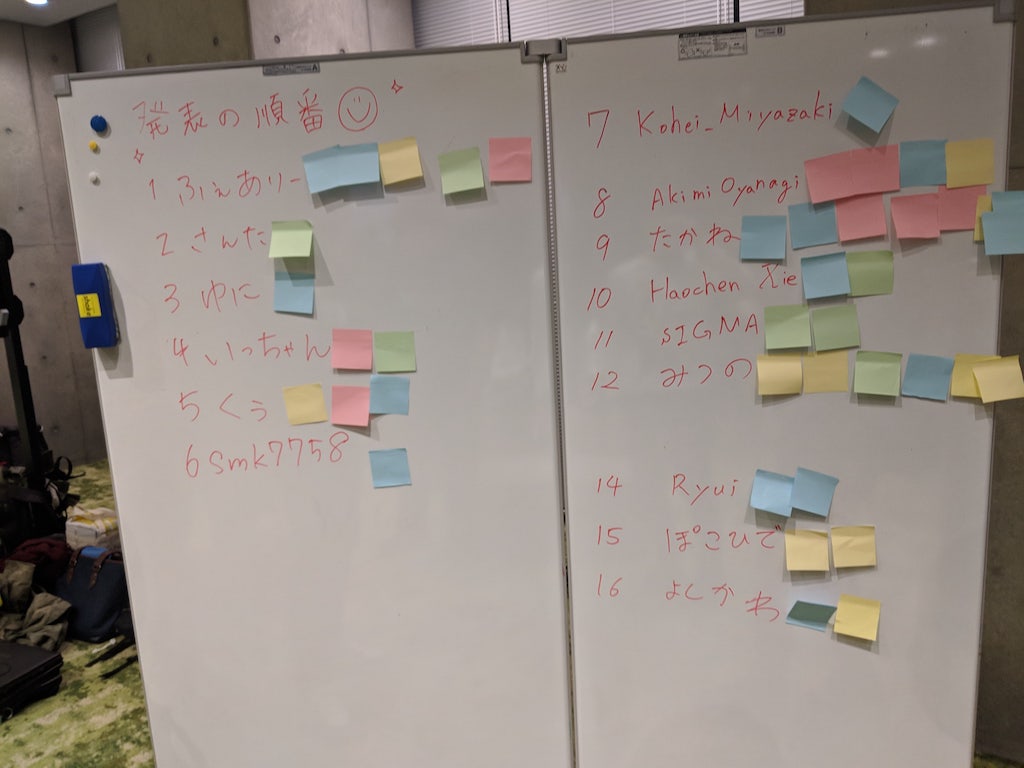 発表の順番
1 ふぇありー
2 さんた
3 ゆに
4 いっちゃん
5 くぅ
6 smk7758
7 Kohei_Miyazaki
8 Akimi Oyanagi
9 たかね
10 Haochen Xie
11 SIGMA
12 みつの
14 Ryui
15 ぽこひで
16 よしかわ